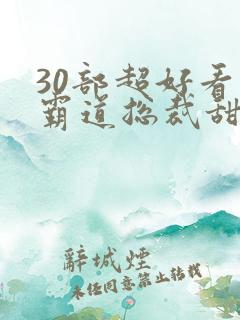 30部超好看
霸道总裁甜
辞城烟
未经同意禁止转载